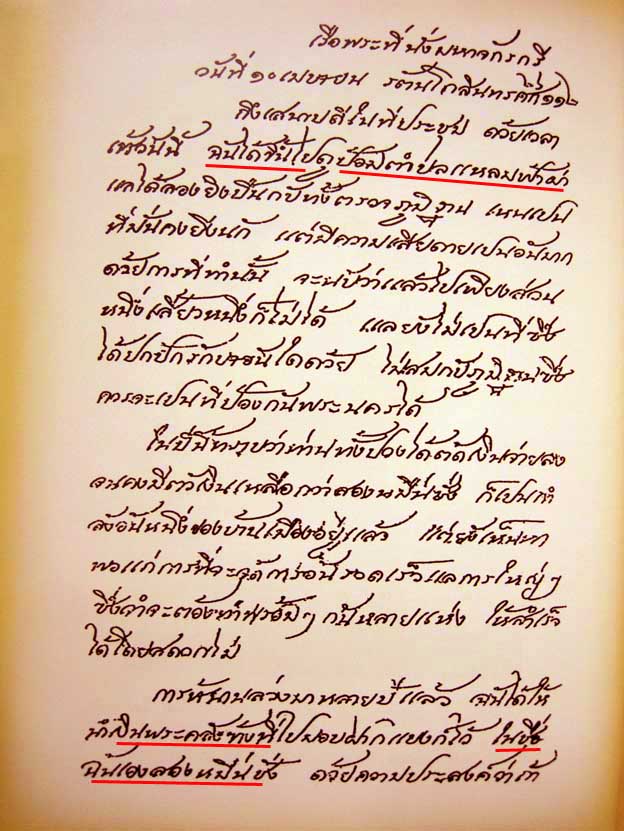 เรือพระที่นั่งมหาจักรกรี
วันที่ ๑๐ เมษายน รตันโกสินทรศักี ๑๑๒
ถึงเสนาบดีในที่ประชุม ด้วยเวลา
เช้าวันนี้ ฉันได้ขึ้นไปดูป้อมตำบลแหลมฟ้าผ่า
แลได้ลองยิงปืนกับทั้งตรวจภูมิ์ฐาน เหนเปน
ที่มั่นคงยิ่งนัก แต่มีความเสียดายเปนอันมาก
ด้วยการที่ทำนั้น จะนับว่าแล้วไปเพียงส่วน
หนึ่งเสี้ยวหนึ่งก็ไม่ได้ แลยังไม่เปนที่ซึ่ง
ได้ปกปักรักษาอันใดด้วย ไม่สมกับภูมิ์ฐานซึ่ง
ควรจะเปนที่ป้องกันพระนครได้
ในปีนี้ทราบว่าท่านทั้งปวงได้ตัดเงินจ่ายลง
จนคงมีตัวเงินเหลือกว่าสองหมื่นชั่ง ก็เปนกำ
ลังอันหนึ่งของบ้านเมืองอยู่แล้ว แต่ยังเห็นหา
พอแก่การที่จะจัดการอันรวดเร็วแลการใหญ่ๆ
ซึ่งจำจะต้องทำพร้อมๆ กันหลายแห่ง ให้สำเร็จ
ได้โดยสดวกไม่
การที่ผ่านล่วงมาหลายปีแล้ว ฉันได้ให้
นำเงินพระคลังข้างที่ไปมอบฝากแบงก์ไว้ ในชื่อ
ฉันเองสองหมื่นชั่ง ด้วยความประสงค์ว่าถ้า